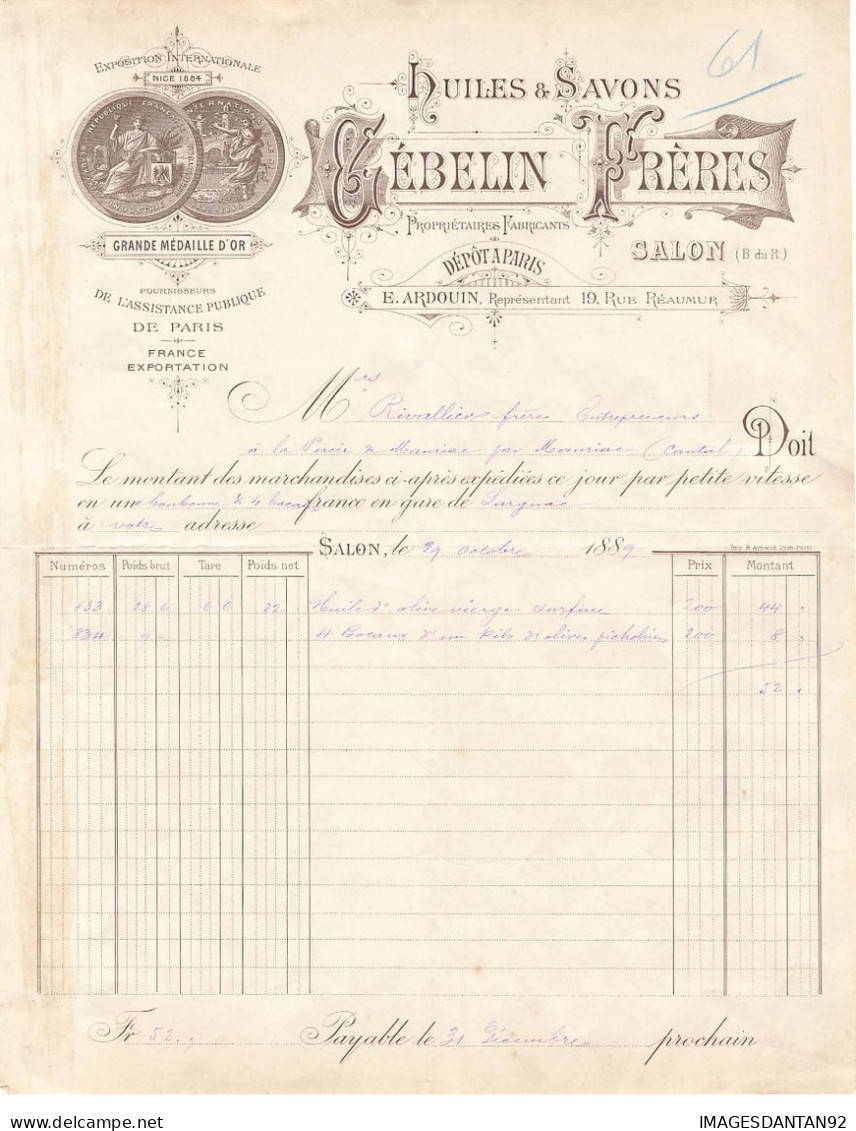 61
EXPOSITION INTERNATIONALE
NICE 1884
GRANDE MÉDAILLE D'OR
FOURNISSEURS
DE L'ASSISTANCE PUBLIQUE
DE PARIS
FRANCE
EXPORTATION
HUILES & SAVONS
GÉBELIN FRÈRES
PROPRIÉTAIRES FABRICANTS
SALON (B. du R.)
DÉPÔT A PARIS
E. ARDOUIN, Représentant 19, RUE RÉAUMUR
Mrs Rivallier frères Entrepreneurs
à la Percée de Mauriac par Mauriac (Cantal) Doit
Le montant des marchandises ci-après expédiées ce jour par petite vitesse
en une bonbonne & 4 bocaux franco en gare de
à votre adresse
SALON, le 29 octobre 1889
Numéros Poids brut Tare Poids net Prix Montant
833 28 6 6 6 22 Huile d'olive vierge surfine 200 44 "
834 9 - 4 Bocaux d'un kilo olives picholines 200 8 "
52 "
Fr 52 " Payable le 31 Décembre prochain
IMAGESDANTAN92